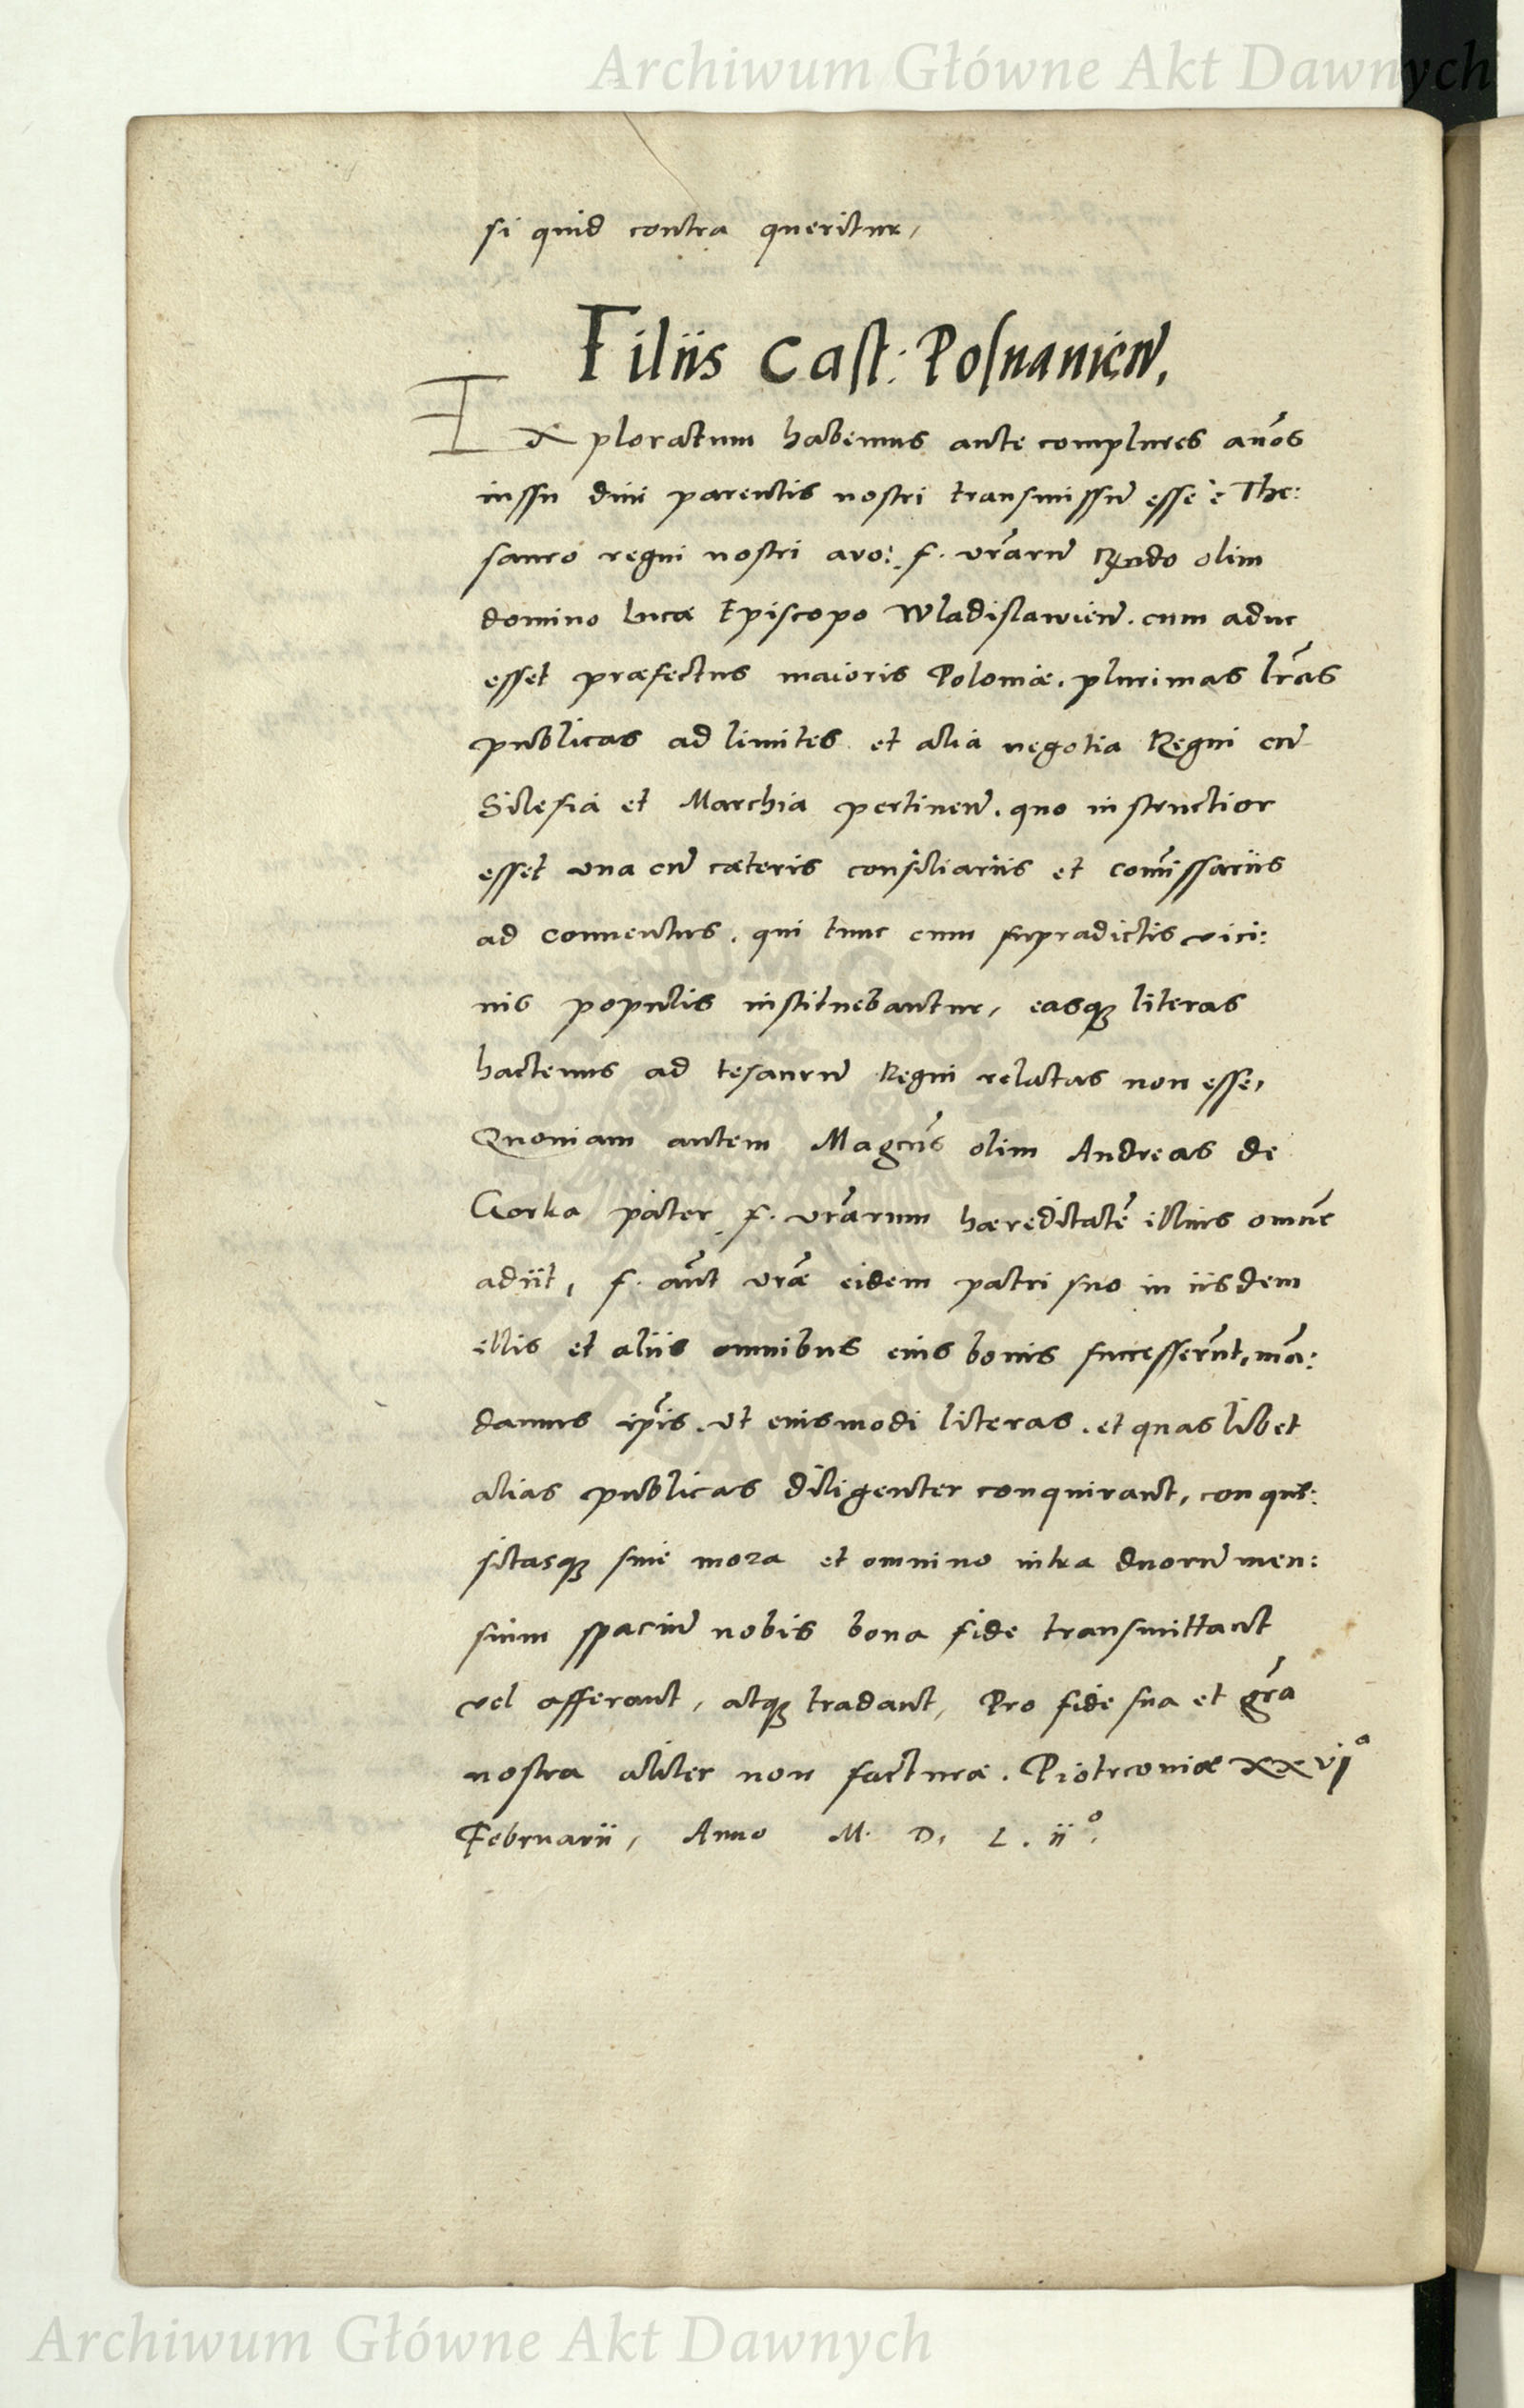 Archiwum Główne Akt Dawnych
si quid contra queritur,
Filiis Cast: Posnanień.
Exploratum habemus ante complures años
iussu diui parentis nostri transmissũ esse è The:
sauro regni nostri auo: f. vrãrũ Rndo olim
domino Lucæ Episcopo Wladislavień. cum aduc
esset præfectus maioris Poloniæ. plurimas lrãs
publicas ad limites et alia negotia Regni cũ
Silesia et Marchia pertineñ. quo instructior
esset vna cũ cæteris consiliariis et comissariis
ad conuentus. qui tunc cum supradictis vici:
nis populis instituebantur, easqꝫ literas
hactenus ad tesaurũ Regni relatas non esse,
Quoniam autem Magcus olim Andreas de
Gorka pater f. vrãrum hæreditatẽ illius omnẽ
adiit, f. aũt vrãe eidem patri suo in iisdem
illis et aliis omnibus eius bonis successerũt, mã:
damus ipĩs. vt eiusmodi literas. et quas libet
alias publicas diligenter conquirant, conqui:
sitasqꝫ sine mora et omnino intra duorũ men:
sium spaciũ nobis bona fide transmittant
vel afferant, atqꝫ tradant, Pro fide sua et grã
nostra aliter non facturæ. Piotrcouiæ xxvjª
Februarii, Anno M. D. L. iiº.
Archiwum Główne Akt Dawnych